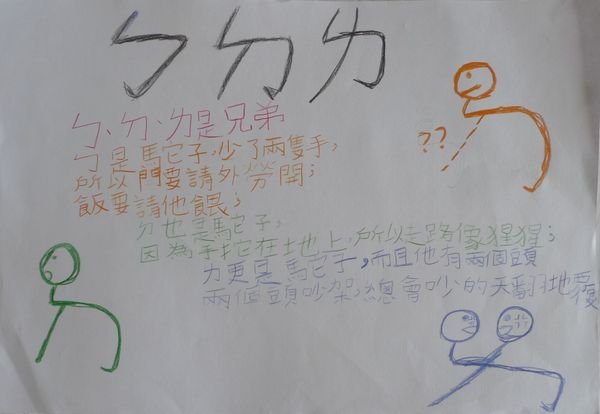 ㄅ ㄉ ㄌ
ㄅ、ㄉ、ㄌ是兄弟
ㄅ是馬它子,少了兩隻手,
所以門要請外勞開;
飯要請他餵;
ㄉ也是馬它子,
因為手拕在土地上,所以走路像猩猩;
ㄌ更是馬它子,而且他有兩個頭
兩個頭吵架,總會吵的天翻地覆
??